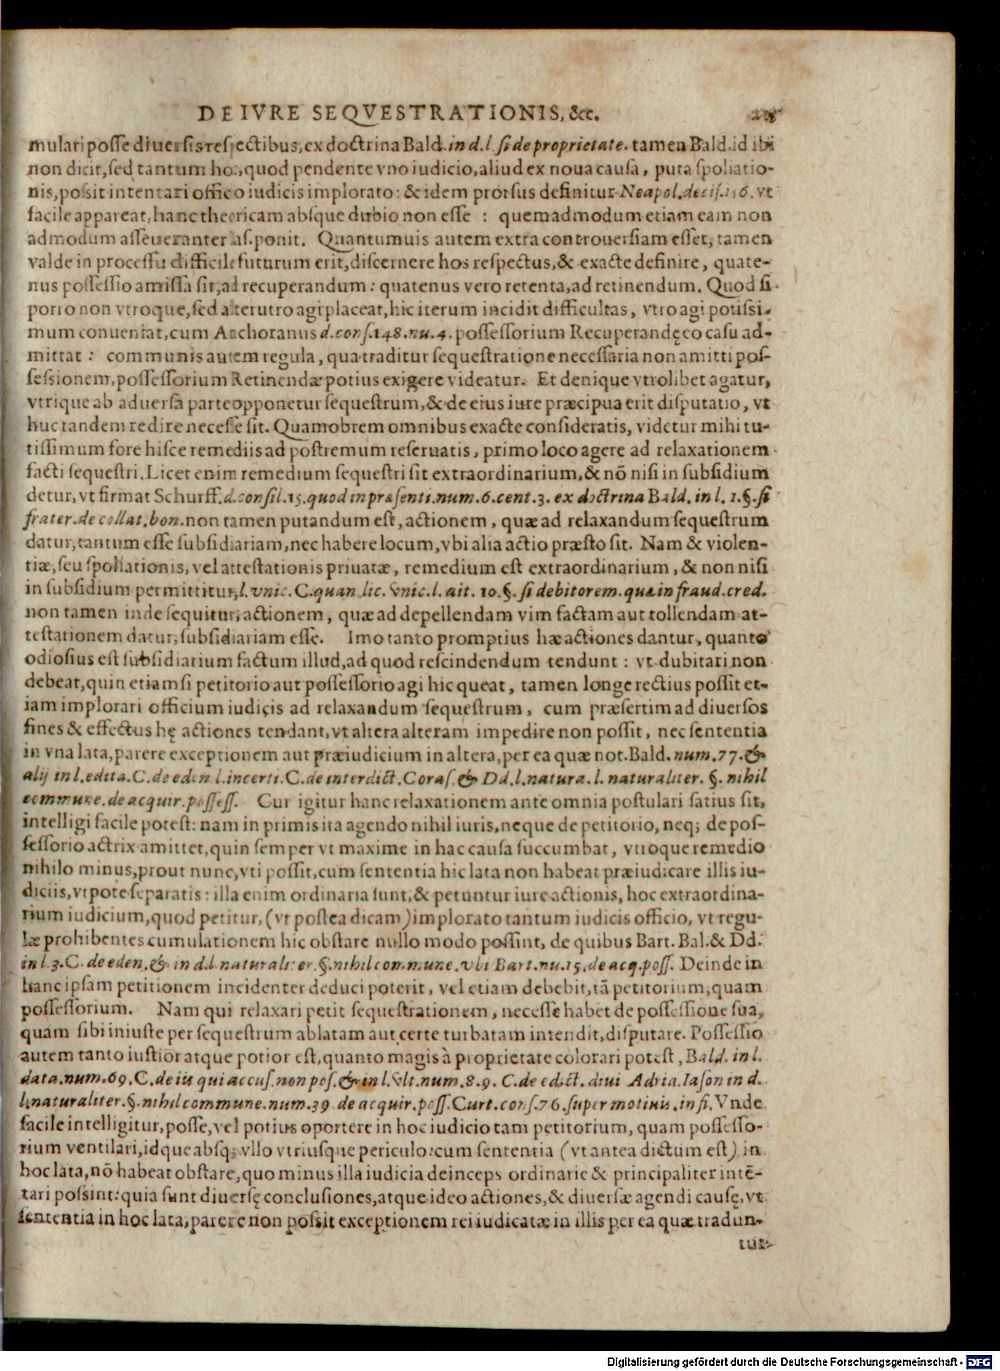 DE IVRE SEQVESTRATIONIS, &c.
mulari posse diuersis respectibus, ex doctrina Bald. in d. l. si de proprietate. tamen Bald. id ibi
non dicit, sed tantum hoc, quod pendente vno iudicio, aliud ex noua causa, puta spoliatio-
nis, possit intentari officio iudicis implorato: & idem prorsus definitur Neapol. decis. 156. vt
facile appareat, hanc theoricam absque dubio non esse : quemadmodum etiam eam non
admodum asseueranter as. ponit. Quantumuis autem extra controuersiam esset, tamen
valde in processu difficile futurum erit, discernere hos respectus, & exacte definire, quate-
nus possessio amissa sit, ad recuperandum: quatenus vero retenta, ad retinendum. Quod si
porro non vtroque, sed alterutro agi placeat, hic iterum incidit difficultas, vtro agi potissi-
mum conueniat, cum Anchoranus d. cons. 148. nu. 4. possessorium Recuperandę eo casu ad-
mittat : communis autem regula, qua traditur sequestratione necessaria non amitti pos-
sessionem, possessorium Retinendæ potius exigere videatur. Et denique vtrolibet agatur,
vtrique ab aduersa parte opponetur sequestrum, & de eius iure præcipua erit disputatio, vt
huc tandem redire necesse sit. Quamobrem omnibus exacte consideratis, videtur mihi tu-
tissimum fore hisce remediis ad postremum reseruatis, primo loco agere ad relaxationem
facti sequestri. Licet enim remedium sequestri sit extraordinarium, & nõ nisi in subsidium
detur, vt firmat Schurff. d. consil. 15. quod in præsenti. num. 6. cent. 3. ex doctrina Bald. in l. 1. §. si
frater. de collat. bon. non tamen putandum est, actionem, quæ ad relaxandum sequestrum
datur, tantum esse subsidiariam, nec habere locum, vbi alia actio præsto sit. Nam & violen-
tiæ, seu spoliationis, vel attestationis priuatæ, remedium est extraordinarium, & non nisi
in subsidium permittitur, l. vnic. C. quan. lic. vnic. l. ait. 10. §. si debitorem. quæ in fraud. cred.
non tamen inde sequitur, actionem, quæ ad depellendam vim factam aut tollendam at-
testationem datur, subsidiariam esse. Imo tanto promptius hæ actiones dantur, quanto
odiosius est subsidiarium factum illud, ad quod rescindendum tendunt : vt dubitari non
debeat, quin etiamsi petitorio aut possessorio agi hic queat, tamen longe rectius possit et-
iam implorari officium iudicis ad relaxandum sequestrum, cum præsertim ad diuersos
fines & effectus hę actiones tendant, vt altera alteram impedire non possit, nec sententia
in vna lata, parere exceptionem aut præiudicium in altera, per ea quæ not. Bald. num. 77. &
alij in l. edita. C. de eden. l. incerti. C. de interdict. Coras. & Dd. l. natura. l. naturaliter. §. nihil
commune. de acquir. possess. Cur igitur hanc relaxationem ante omnia postulari satius sit,
intelligi facile potest: nam in primis ita agendo nihil iuris, neque de petitorio, neq; de pos-
sessorio actrix amittet, quin semper vt maxime in hac causa succumbat, vtroque remedio
nihilo minus, prout nunc, vti possit, cum sententia hic lata non habeat præiudicare illis iu-
diciis, vtpote separatis : illa enim ordinaria sunt, & petuntur iure actionis, hoc extraordina-
rium iudicium, quod petitur, (vt postea dicam) implorato tantum iudicis officio, vt regu-
læ prohibentes cumulationem hic obstare nullo modo possint, de quibus Bart. Bal. & Dd.
in l. 3. C. de eden. & in d. l. naturaliter. §. nihil commune. vbi Bart. nu. 15. de acq. poss. Deinde in
hanc ipsam petitionem incidenter deduci poterit, vel etiam debebit, tã petitorium, quam
possessorium. Nam qui relaxari petit sequestrationem, necesse habet de possessione sua,
quam sibi iniuste per sequestrum ablatam aut certe turbatam intendit, disputare. Possessio
autem tanto iustior atque potior est, quanto magis à proprietate colorari potest, Bald. in l.
data. num. 69. C. de iis qui accus. non pos. & in l. vlt. num. 8. 9. C. de edict. diui Adria. Iason in d.
l. naturaliter. §. nihil commune. num. 39 de acquir. poss. Curt. cons. 76. super motiuis. in fi. Vnde
facile intelligitur, posse, vel potius oportere in hoc iudicio tam petitorium, quam possesso-
rium ventilari, idque absq; vllo vtriusque periculo: cum sententia (vt antea dictum est) in
hoc lata, nõ habeat obstare, quo minus illa iudicia deinceps ordinarie & principaliter intẽ-
tari possint: quia sunt diuersę conclusiones, atque ideo actiones, & diuersæ agendi causę, vt
sententia in hoc lata, parere non possit exceptionem rei iudicatæ in illis per ea quæ tradun-
tur
Digitalisierung gefördert durch die Deutsche Forschungsgemeinschaft - DFG